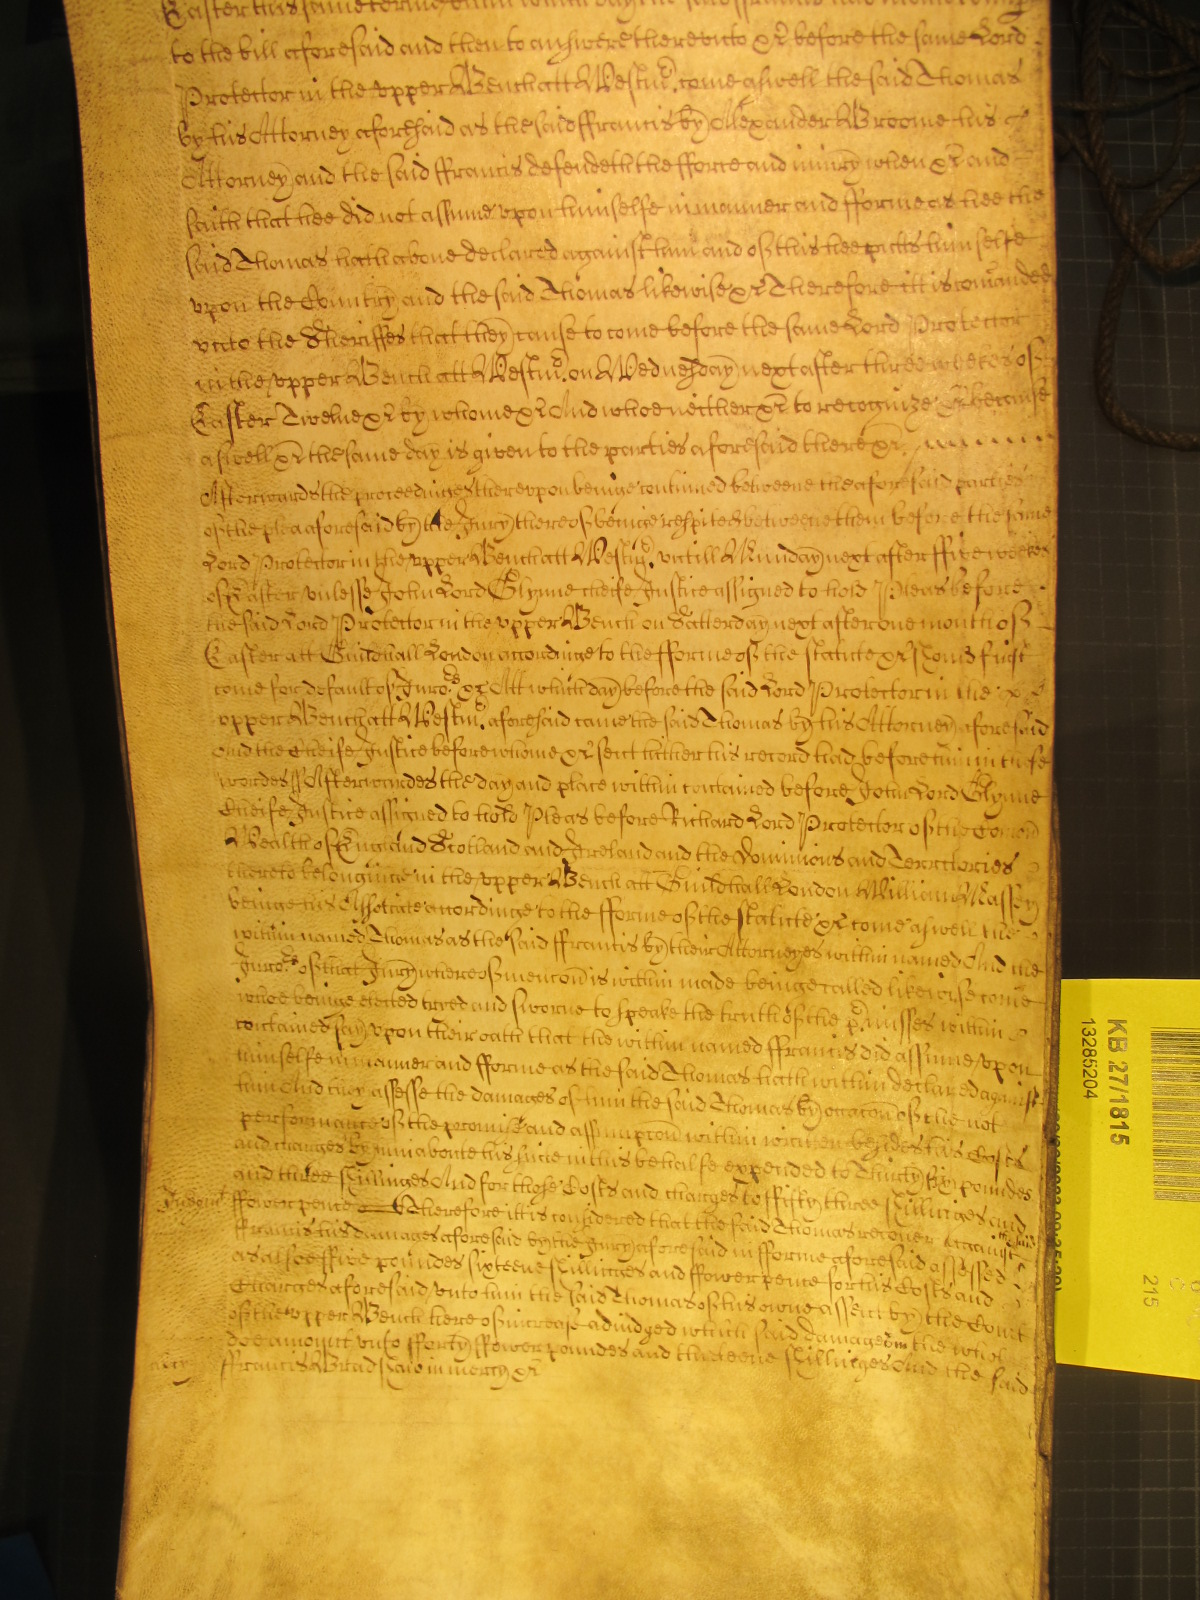 Easter this same terme untill which day the said ffrancis had
to the bill aforesaid and then to answere thereunto &c before the same Lord
Protector in the upper Bench att Westmr. come aswell the said Thomas
by his Attorney aforesaid as the said ffrancis by Alexander Broome his
Attorney and the said ffrancis defendeth the fforce and iniury when &c and
saith that hee did not assume upon himselfe in manner and fforme as hee the
said Thomas hath above declared against him and of this hee putts himselfe
upon the Countrey and the said Thomas likewise &c Therefore itt is comanded
unto the Sheriffes that they cause to come before the same Lord Protector
in the upper Bench att Westmr. on Wednesday next after three weekes of
Easter Twelve &c by whome &c And whoe neither &c to recognize &c because
aswell &c the same day is given to the parties aforesaid there &c
Afterwards the proceedinges thereupon beinge continued betweene the aforesaid parties
of the plea aforesaid by the Jury thereof beinge respited betweene them before the same
Lord Protector in the upper Bench att Westmr. untill Munday next after ffive weekes
of Easter unlesse John Lord Glynne cheife Justice assigned to hold Pleas before
the said Lord Protector in the upper Bench on Satterday next after one month of
Easter att Guildhall London accordinge to the fforme of the statute &c should first
come for default of Juro:rs &c Att which day before the said Lord Protector in the
upper Bench att Westmr. aforesaid came the said Thomas by his Attorney aforesaid
And the Cheife Justice before whome &c sent hither his record had before him in these
wordes ss Afterwardes the day and place within contained before John Lord Glynne
Cheife Justice assigned to hold Pleas before Richard Lord Protector of the Comon
Wealth of England Scotland and Ireland and the Dominions and Territories
thereto belonginge in the upper Bench att Guildhall London William Massey
beinge his Assotiate accordinge to the fforme of the statute &c come aswell the
within named Thomas as the said ffrancis by their Attorneyes within named And the
Juro:rs of that Jury whereof mencon is within made beinge called likewise come
whoe beinge elected tryed and sworne to speake the truth of the p'misses within
contained say upon their oath that the within named ffrancis did assume upon
himselfe in manner and fforme as the said Thomas hath within declared against
him And they assesse the damages of him the said Thomas by occacon of the not
performance of the promise and assumpcon within written besides his Costs
and charges by him aboute his suite in this behalfe expended to Thirty six poundes
and three shillinges And for those Costs and charges to ffifty three shillinges and
Judgmt ffower pence Therefore itt is considered that the said Thomas recover against the said
ffrancis his damages aforesaid by the Jury aforesaid in fforme aforesaid assessed
as alsoe ffive poundes sixteene shillinges and ffower pence for his Costs and
Charges aforesaid unto him the said Thomas of his owne assent by the Court
of the upper Bench here of increase adiudged which said damages in the whole
doe amount unto fforty ffower poundes and thirteene shillinges And the said
ffrancis Bradshaw in mercy &c
KB 27/1815
13285204
215